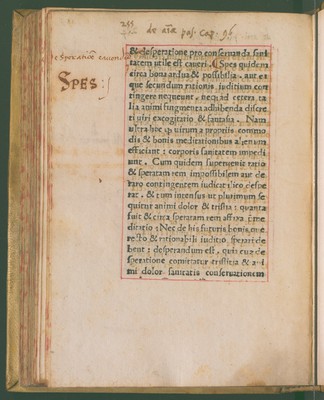 255
de aīa pos. Cap. 96
Speratiōe cavendū
SPES:
& desperatione pro conseruanda sani
tatem utile est caueri. Spes quidem
circa bona ardua & possibilia. aut ea
que secundum rationis iuditium con
tingere nequeunt. neqȝ ad cetera ta
lia animi figmenta adhibenda discre
ti uiri excogitatio & fantasia. Nam
ultra hoc qȝ uirum a propriis commo
dis & bonis meditationibus alienum
efficiant: corporis sanitatem impedi
unt. Cum quidem superuenit ratio
& speratam rem impossibilem aut de
raro contingentem iudicat: ilico despe
rat. & tum intensus ut plurimum se
quitur animi dolor & tristia: quanta
fuit & circa speratam rem assixa pme
ditatio: Nec de his futuris bonis, que
recto & rationabili iuditio sperari de
bent: desperandum est, quia cuȝ de
speratione comitatur tristitia & ani
mi dolor sanitatis conseruationem